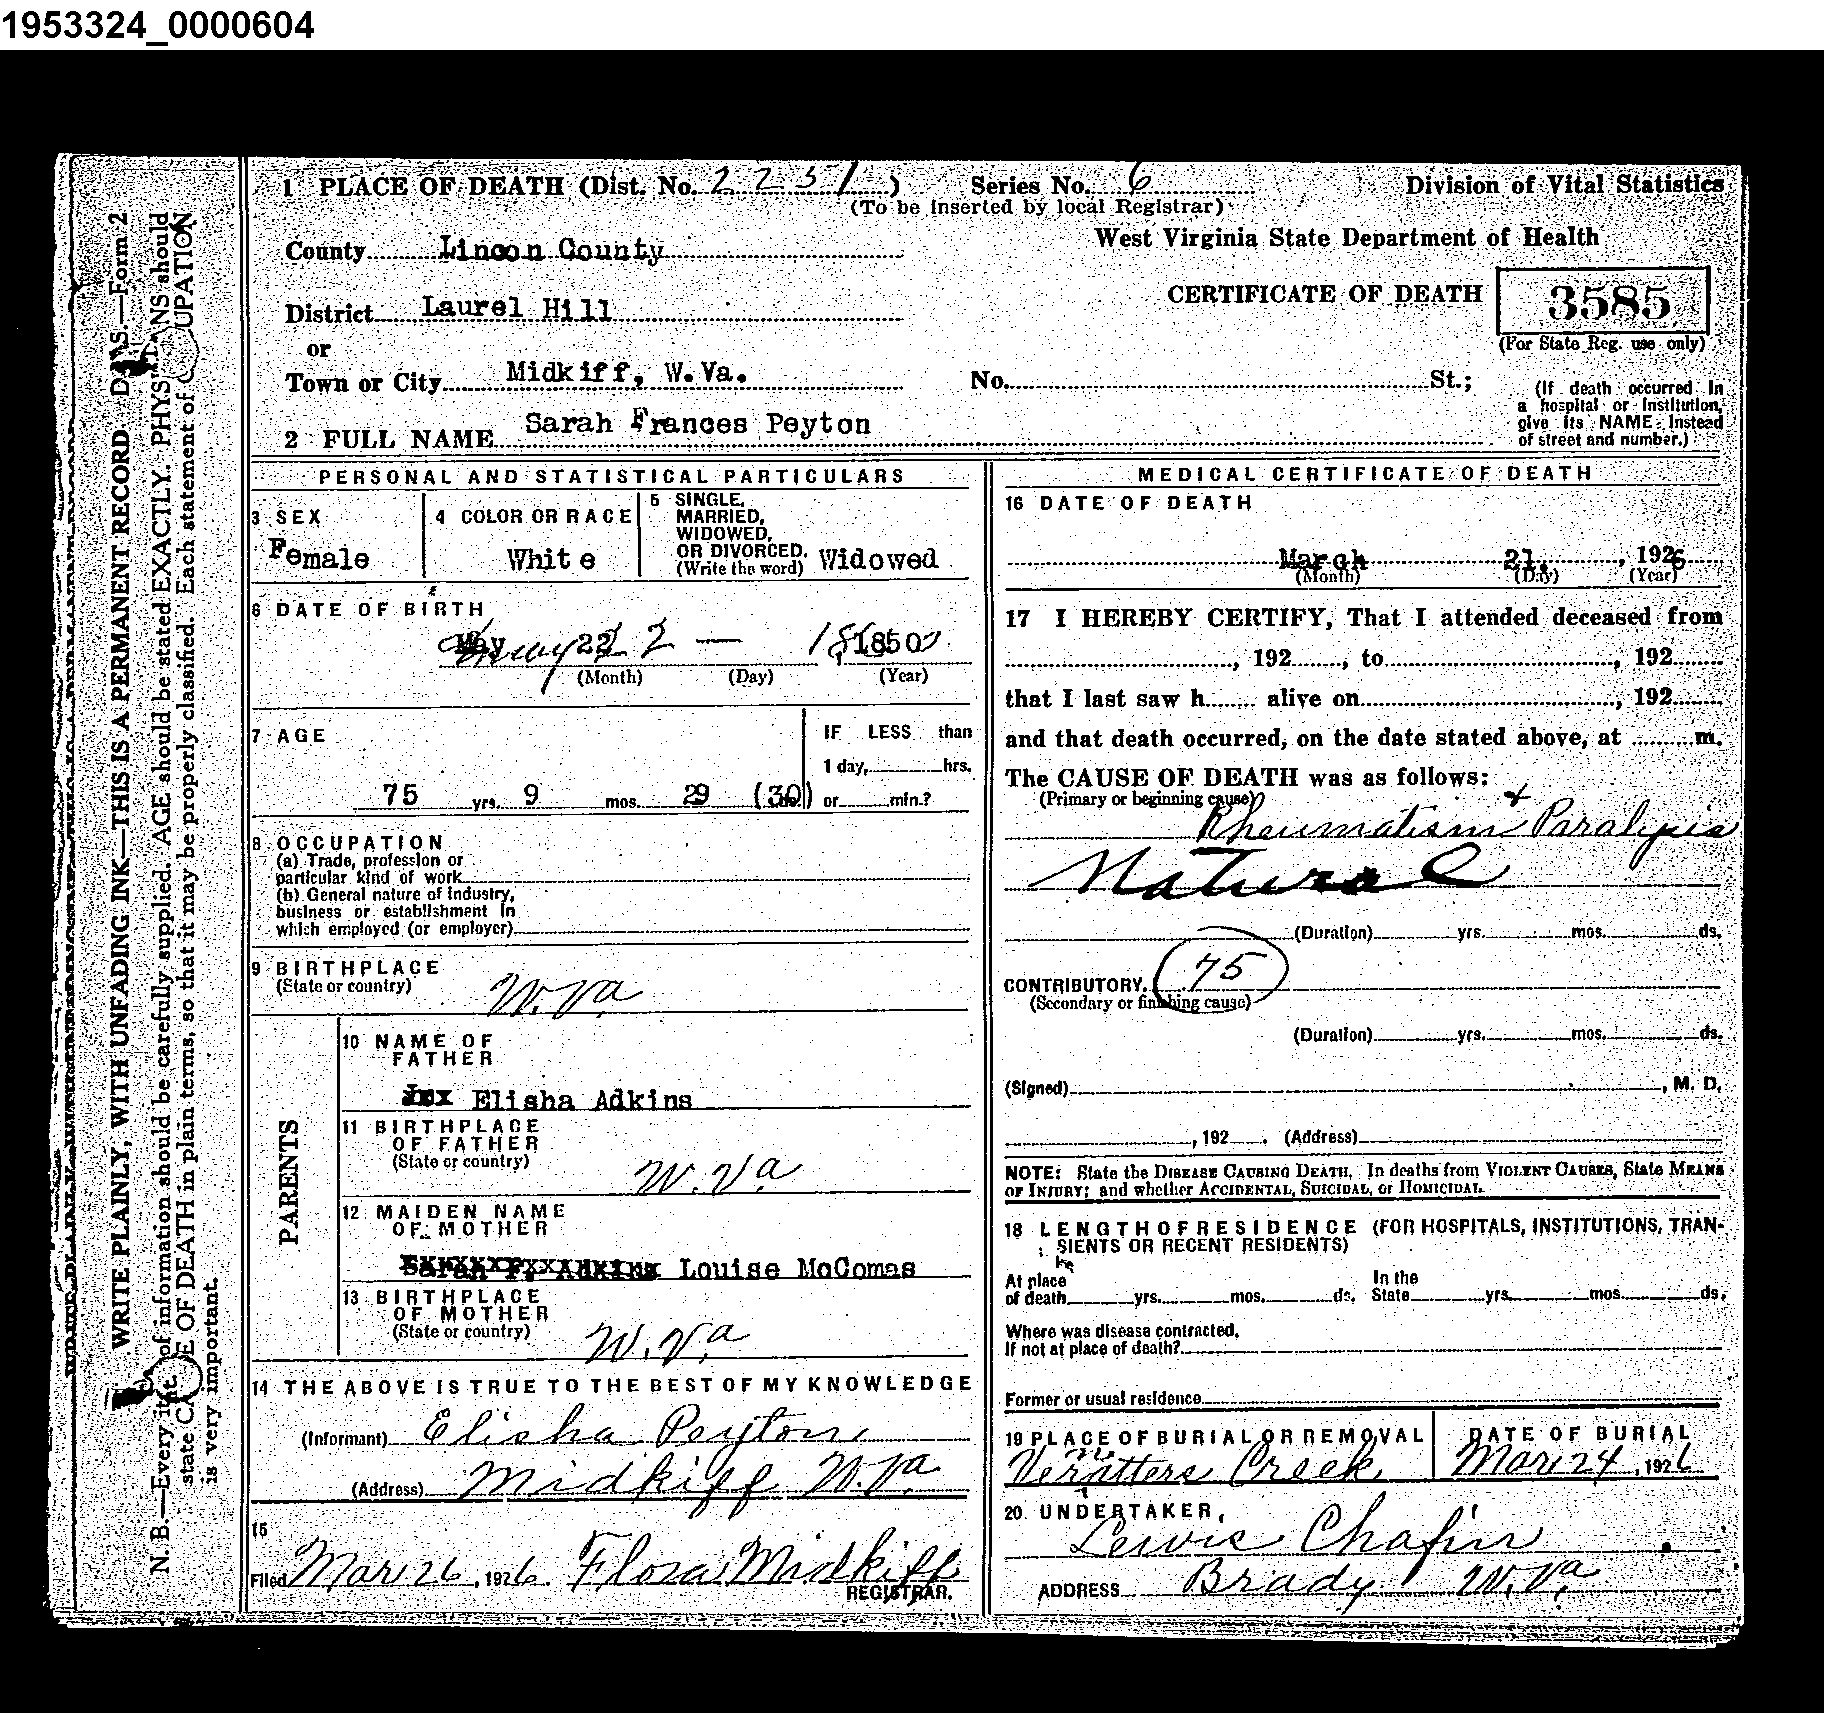 1953324_0000604
1 PLACE OF DEATH (Dist. No. 2251) Series No. 6 Division of Vital Statistics
(To be inserted by local Registrar)
County Lincon County West Virginia State Department of Health
District Laurel Hill CERTIFICATE OF DEATH 3585
or (For State Reg. use only)
Town or City Midkiff, W.Va. No. St.;
(If death occurred in
a hospital or institution,
give its NAME instead
of street and number.)
2 FULL NAME Sarah Frances Peyton
PERSONAL AND STATISTICAL PARTICULARS
3 SEX
Female
4 COLOR OR RACE
White
5 SINGLE,
MARRIED,
WIDOWED,
OR DIVORCED.
(Write the word) Widowed
6 DATE OF BIRTH
May 22 1850
(Month) (Day) (Year)
7 AGE
75 yrs. 9 mos. 29 (30)
IF LESS than
1 day, hrs.
or min.?
8 OCCUPATION
(a) Trade, profession or
particular kind of work
(b) General nature of industry,
business or establishment in
which employed (or employer)
9 BIRTHPLACE
(State or country) W.Va
PARENTS
10 NAME OF
FATHER
Elisha Adkins
11 BIRTHPLACE
OF FATHER
(State or country) W.Va
12 MAIDEN NAME
OF MOTHER
Louise McComas
13 BIRTHPLACE
OF MOTHER
(State or country) W.Va
14 THE ABOVE IS TRUE TO THE BEST OF MY KNOWLEDGE
(Informant) Elisha Peyton
(Address) Midkiff W.Va
15
Filed Mar 26, 1926. Flora Midkiff
REGISTRAR.
MEDICAL CERTIFICATE OF DEATH
16 DATE OF DEATH
March 21, 1926
(Month) (Day) (Year)
17 I HEREBY CERTIFY, That I attended deceased from
, 192 , to , 192
that I last saw h alive on , 192
and that death occurred, on the date stated above, at m.
The CAUSE OF DEATH was as follows:
(Primary or beginning cause)
Rheumatism + Paralysis
Natural
(Duration) yrs. mos. ds.
CONTRIBUTORY. 75
(Secondary or finishing cause)
(Duration) yrs. mos. ds.
(Signed) , M. D.
, 192 . (Address)
NOTE: State the DISEASE CAUSING DEATH. In deaths from VIOLENT CAUSES, State MEANS
OF INJURY; and whether ACCIDENTAL, SUICIDAL, or HOMICIDAL.
18 LENGTH OF RESIDENCE (FOR HOSPITALS, INSTITUTIONS, TRAN-
SIENTS OR RECENT RESIDENTS)
At place
of death yrs. mos. ds.
In the
State yrs. mos. ds.
Where was disease contracted,
If not at place of death?
Former or usual residence
19 PLACE OF BURIAL OR REMOVAL
Creek
DATE OF BURIAL
Mar 24, 1926
20. UNDERTAKER,
Lewis Chafin
ADDRESS Brady W.Va
WRITE PLAINLY, WITH UNFADING INK—THIS IS A PERMANENT RECORD. .—Form 2
N. B.—Every of information should be carefully supplied. AGE should be stated EXACTLY. PHYSICIANS should
state CAUSE OF DEATH in plain terms, so that it may be properly classified. Each statement of OCCUPATION
is very important.